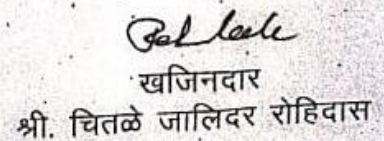 खजिनदार
श्री. चितळे जालिदर रोहिदास